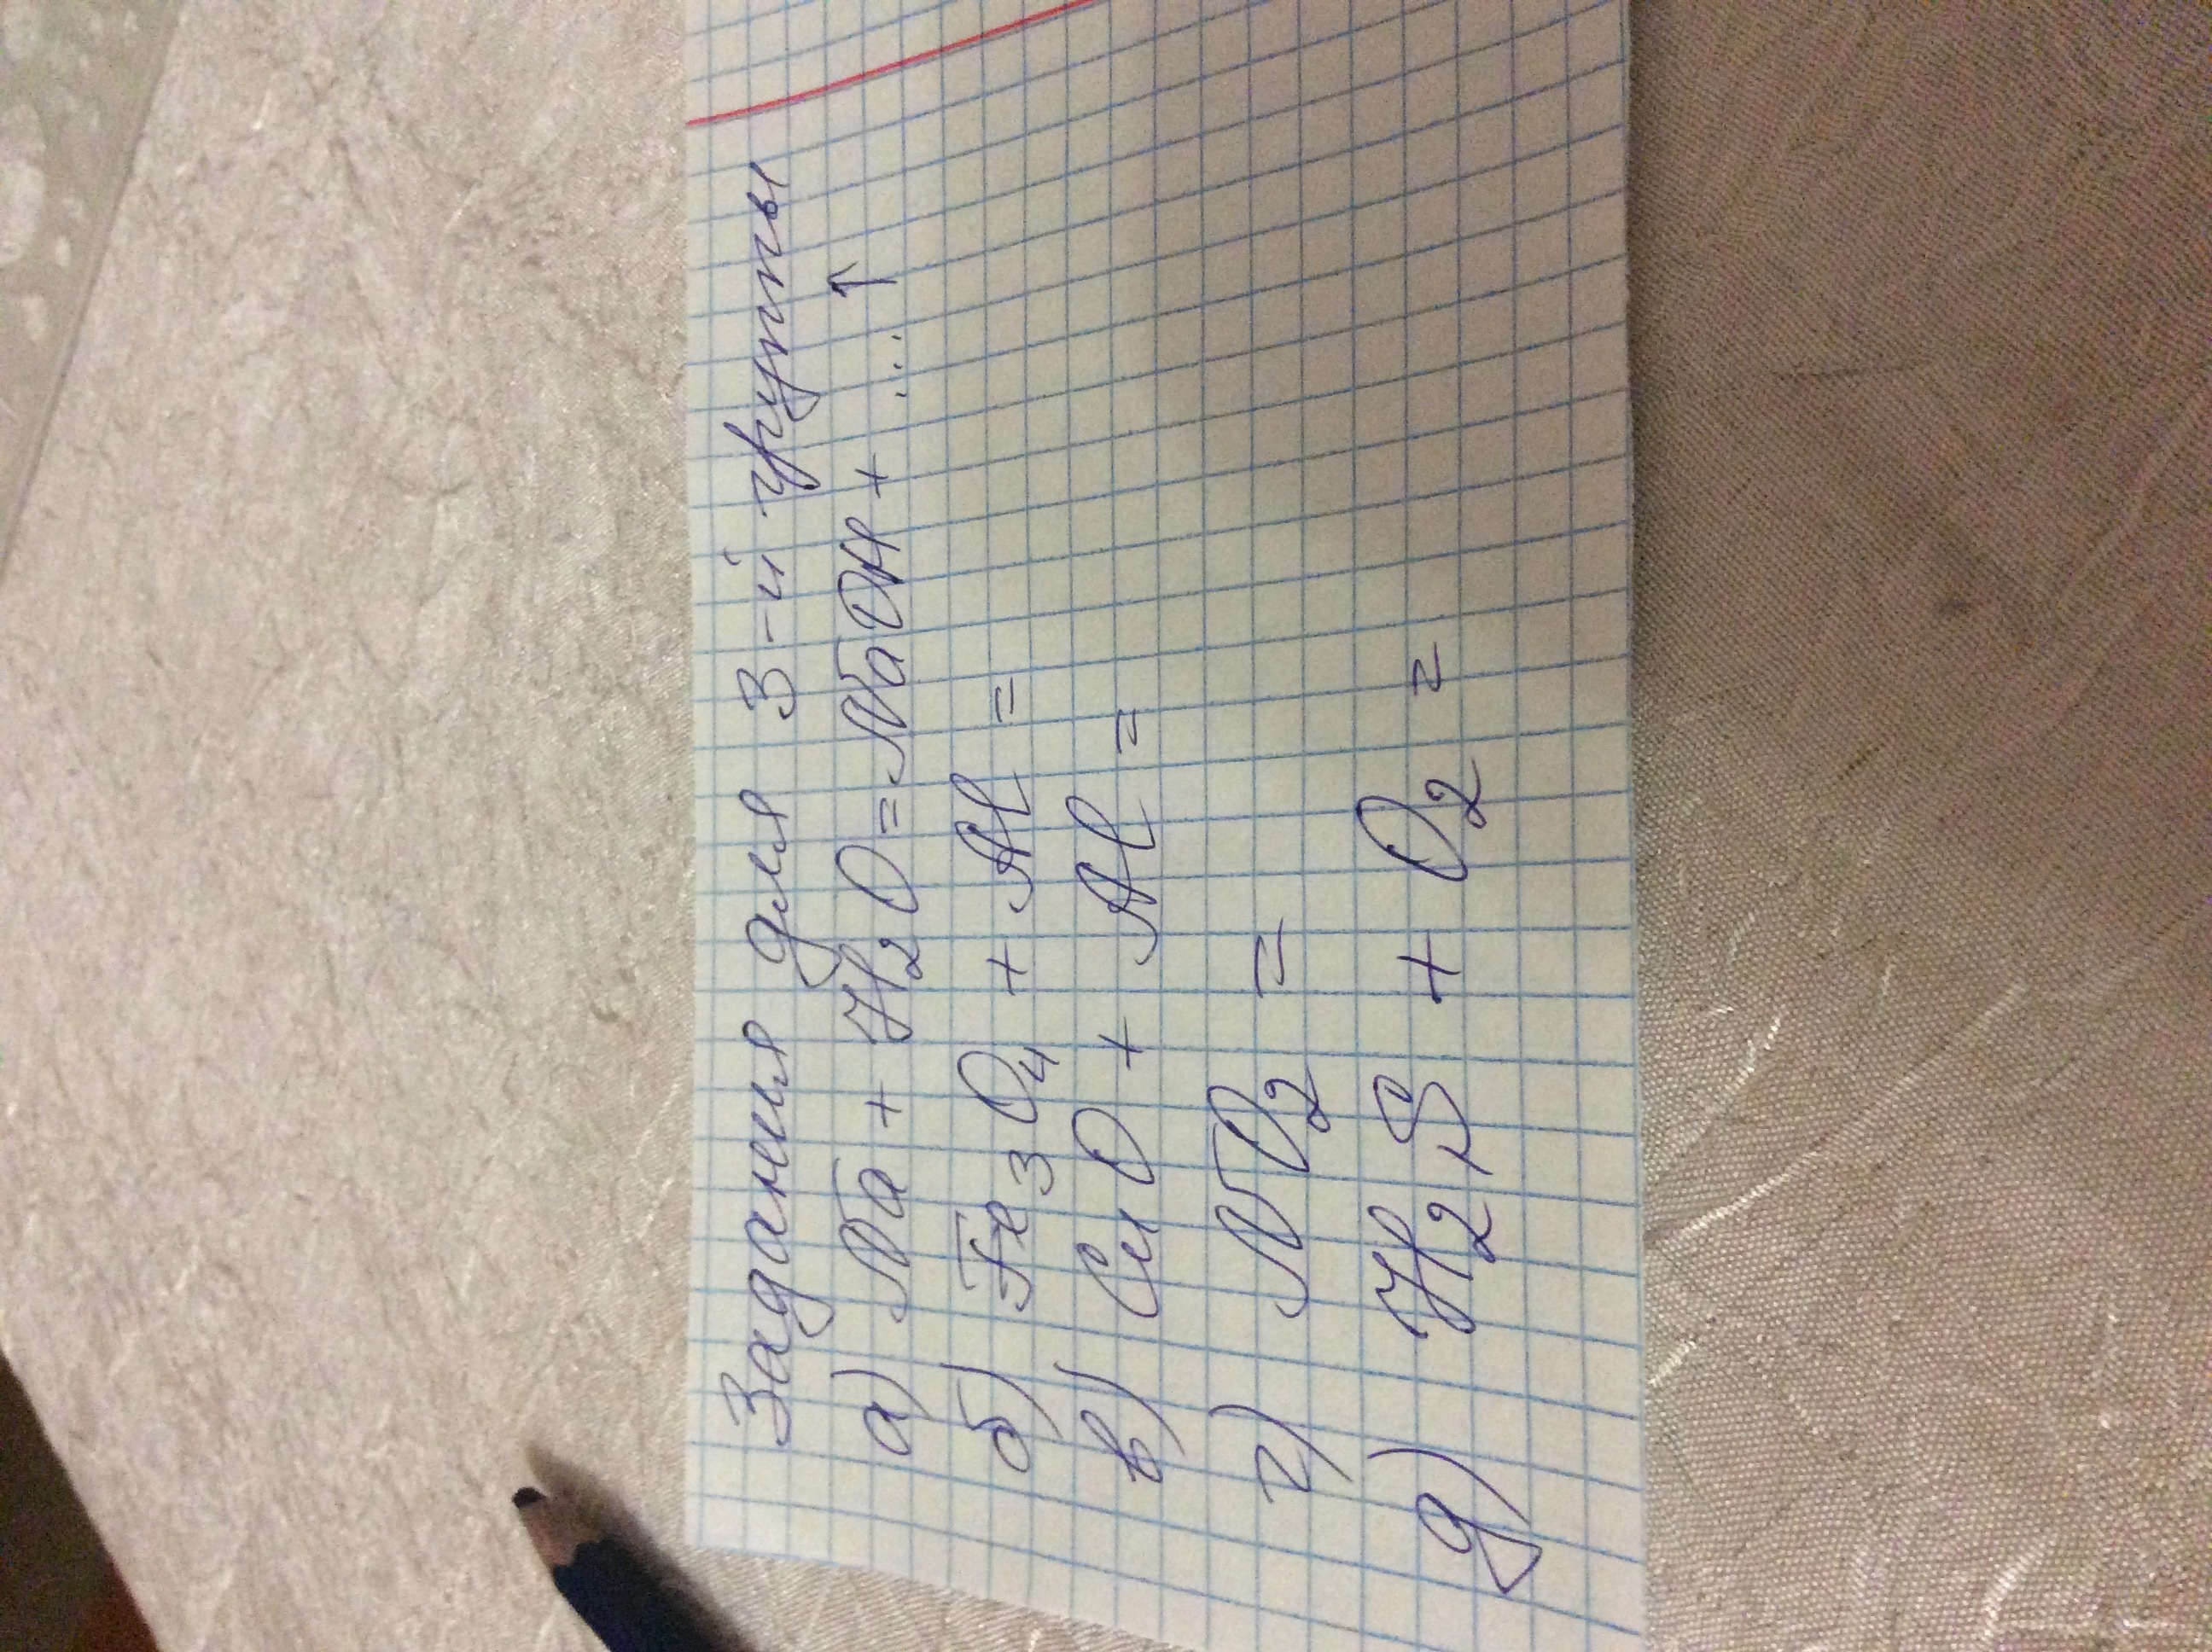 Задания для 3-й группы
а) Na + H₂O = NaOH + ... ↑
б) Fe₃O₄ + Al =
в) CuO + Al =
г) NO₂ =
д) H₂S + O₂ =